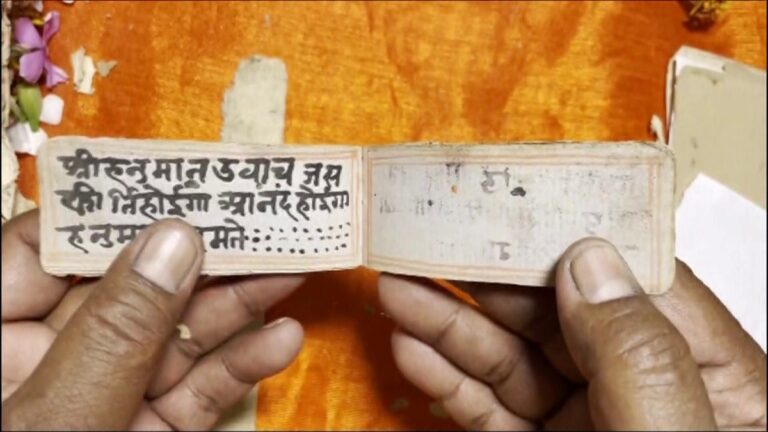 श्रीहनुमानउवाच जस
की र्तिहोईगा आनंदहोईगा
हनुम मते